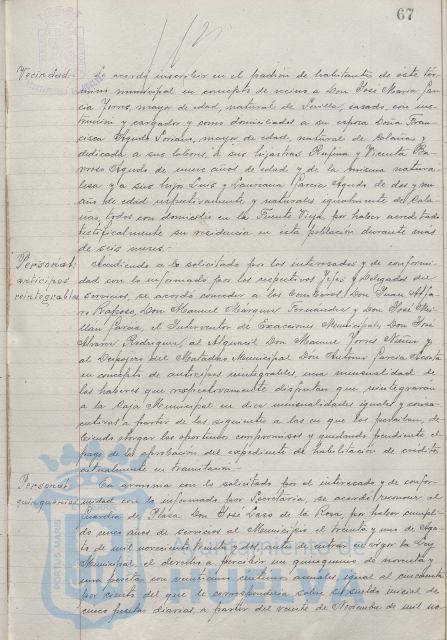 67
Vecindad.- Se acordó inscribir en el padrón de habitantes de este tér-
mino municipal en concepto de vecino a Don José María Gar-
cía Torres, mayor de edad, natural de Sevilla, casado, con ins-
trucción y cargador y como domiciliados a su esposa Doña Fran-
cisca Agudo Soriano, mayor de edad, natural de Calañas y
dedicada a sus labores, a sus hijastras Rufina y Vicenta Ra-
mos Agudo de nueve años de edad y de la misma natura-
leza y a sus hijos Luis y Laureana García Agudo de dos y un
año de edad respectivamente y naturales igualmente de Cala-
ñas, todos con domicilio en la Fuente Vieja, por haber acreditado
testificalmente su residencia en esta población durante más
de seis meses.-
Personal: Accediendo a lo solicitado por los interesados y de conformi-
anticipos dad con lo informado por los respectivos Jefes y Delegados de
reintegrables servicios, se acordó conceder a los Don Juan Alfa-
ro Raposo, Don Manuel Márquez Fernández y Don José Mi-
llán García, al Interventor de Exacciones Municipales Don José
Álvarez Rodríguez, al Alguacil Don Manuel Torres Núñez y
al Despojero del Matadero Municipal Don Antonio García Acosta
en concepto de anticipos reintegrables, una mensualidad de
los haberes que respectivamente disfrutan que reintegrarán
a la Caja Municipal en diez mensualidades iguales y conse-
cutivas a partir de las siguientes a las en que los perciban, de-
biendo otorgar los oportunos compromisos y quedando pendiente el
pago de la aprobación del expediente de habilitación de créditos
actualmente en tramitación.-
Personal: En armonía con lo solicitado por el interesado y de confor-
quinquenios midad con lo informado por Secretaría, se acordó reconocer al
Guardia de Plaza Don José Lazo de la Rosa, por haber cumpli-
do cinco años de servicios al Municipio el treinta y uno de Agos-
to de mil novecientos treinta y dos, antes de entrar en vigor la Ley
Municipal, el derecho a percibir un quinquenio de noventa y
una peseta con veinticinco céntimos anuales, igual al cincuenta
por ciento del que le correspondería sobre su sueldo inicial de
cinco pesetas diarias, a partir del veinte de Noviembre de mil no-
Ayuntamiento de
HUELVA
PORTUS MARIS